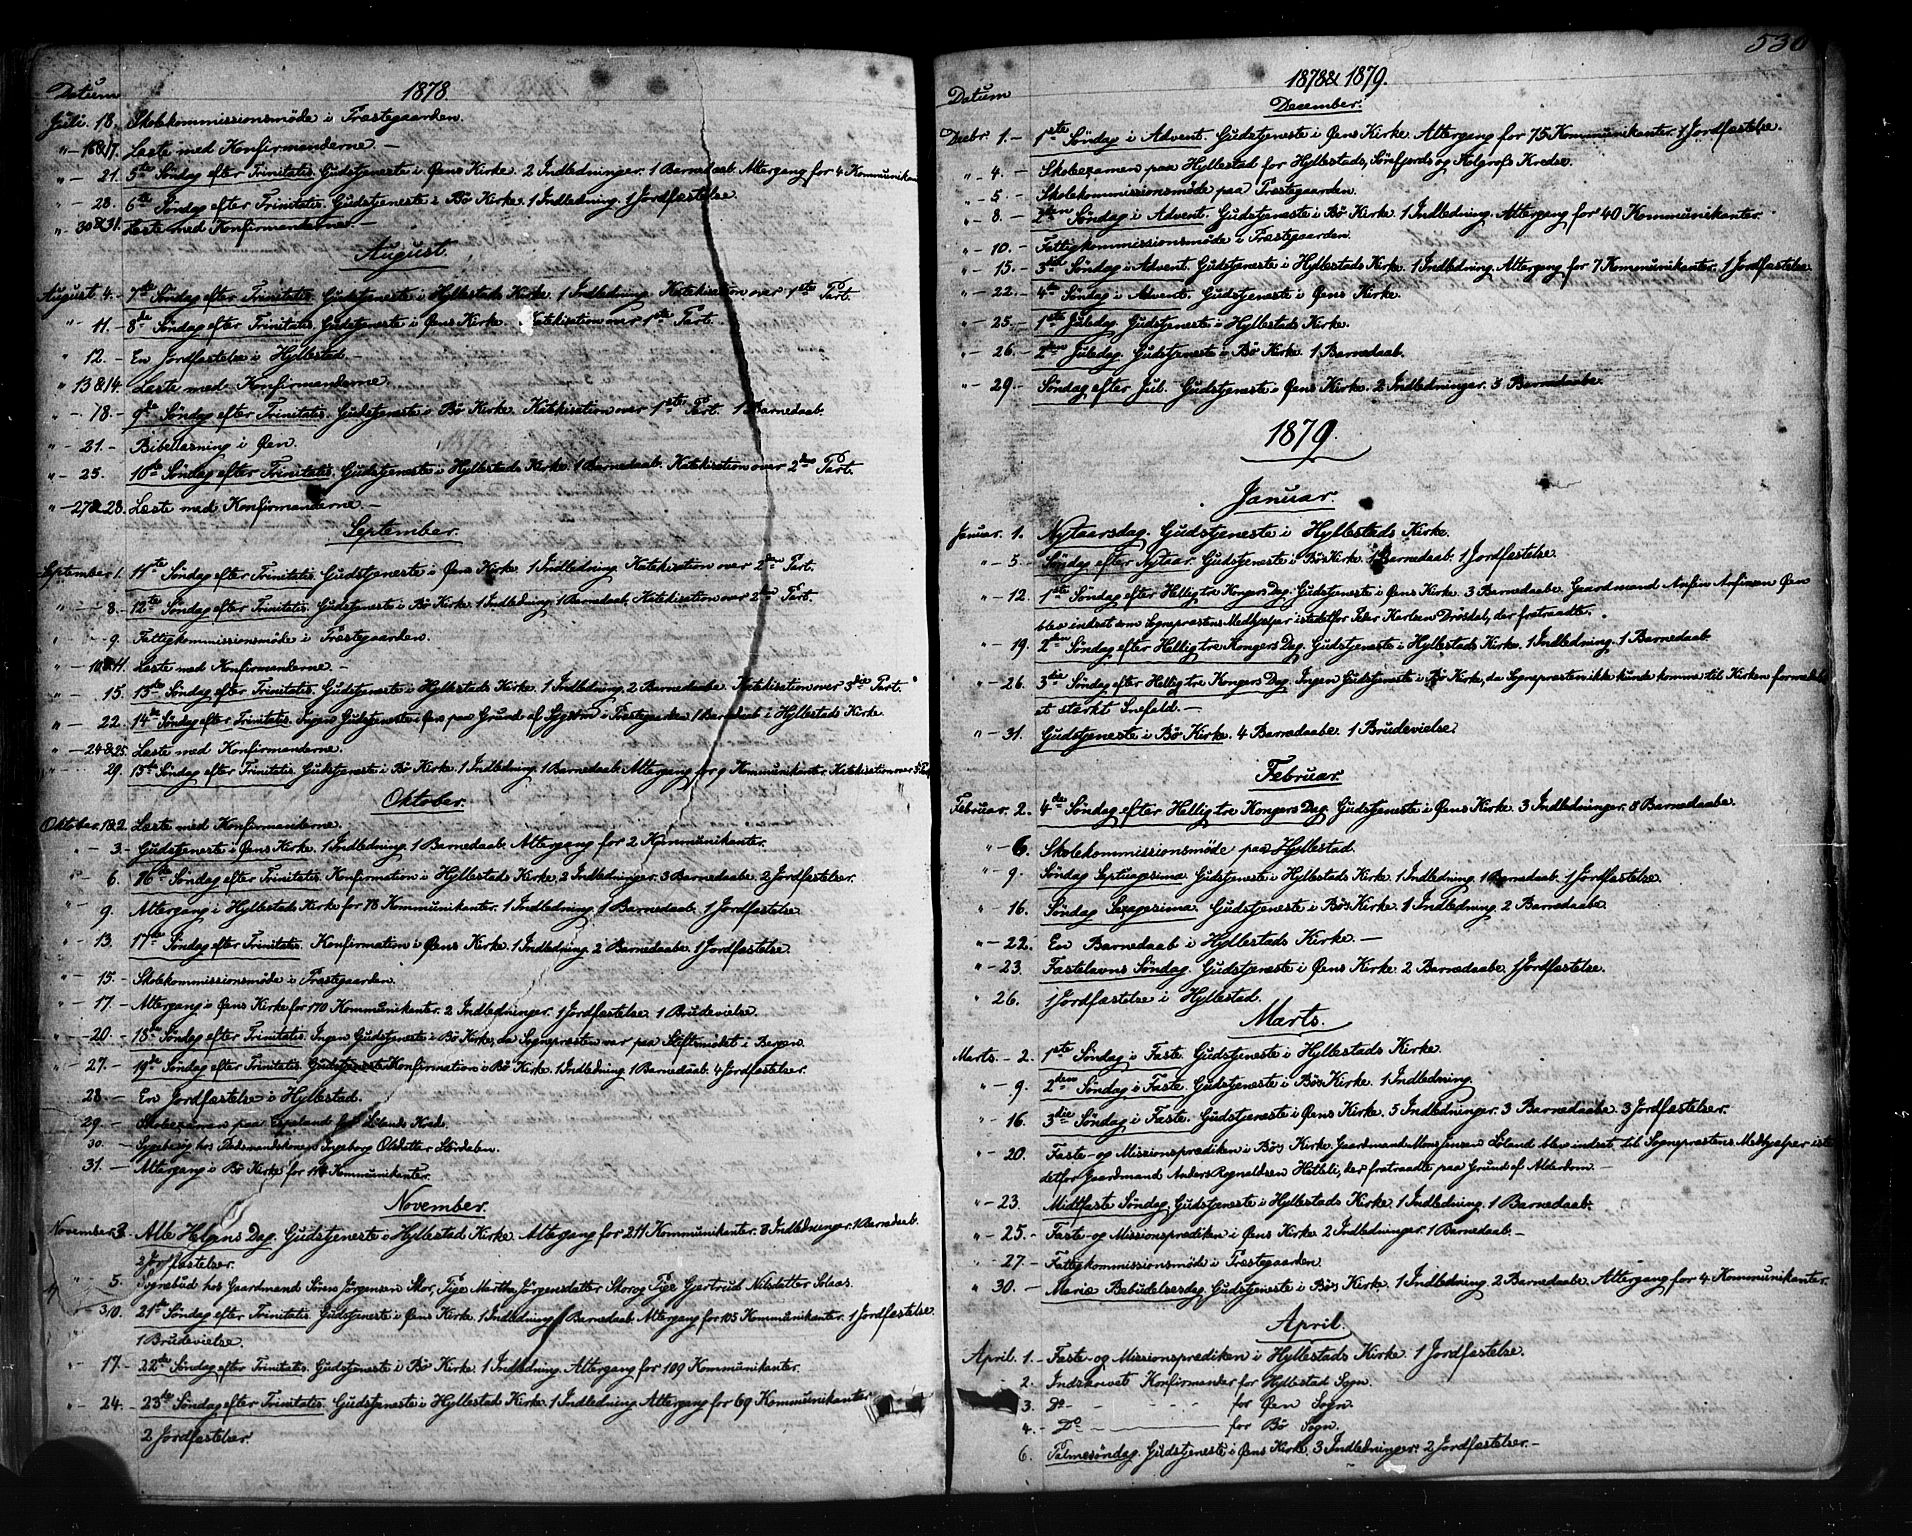 Datum 1878.
Juli. 18. Skolekommissionsmöde i Præstegaarden.
" - 16&17. Læste med Konfirmanderne. -
" - 21. 5te Söndag efter Trinitatis. Gudstjeneste i Øens Kirke. 2 Indledninger. 1 Barnedaab. Altergang for 4 Kommunikan
" - 28. 6te Söndag efter Trinitatis. Gudstjeneste i Bö Kirke. 1 Indledning. 1 Jordfæstelse.
" - 30&31. Læste med Konfirmanderne. -
August.
August 4. - 7de Söndag efter Trinitatis. Gudstjeneste i Hyllestads Kirke. 1 Indledning. Katekisation over 1ste Part.
" - 11. - 8de Söndag efter Trinitatis. Gudstjeneste i Øens Kirke. Katekisation over 1ste Part.
" 12. - En Jordfæstelse i Hyllestad. -
" 13&14. Læste med Konfirmanderne.
" - 18. - 9de Söndag efter Trinitatis. Gudstjeneste i Bö Kirke. Katekisation over 1ste Part. 1 Barnedaab.
" - 21. - Bibellæsning i Øen.
" - 25. 10de Söndag efter Trinitatis. Gudstjeneste i Hyllestads Kirke. 1 Barnedaab. Katekisation over 2den Part.
" - 27&28. Læste med Konfirmanderne. -
September.
September 1. 11te Söndag efter Trinitatis. Gudstjeneste i Øens Kirke. 1 Indledning. Katekisation over 2den Part.
" - 8. - 12te Söndag efter Trinitatis. Gudstjeneste i Bö Kirke. 1 Indledning. 1 Barnedaab. Katekisation over 2den Part.
" - 9. Fattigkommissionsmöde i Præstegaarden.
" - 10&11. Læste med Konfirmanderne. -
" - 15. 13de Söndag efter Trinitatis. Gudstjeneste i Hyllestads Kirke. 1 Indledning. 2 Barnedaabe. Katekisation over 3die Part.
" - 22. 14de Söndag efter Trinitatis. Ingen Gudstjeneste i Øen paa Grund af Sygdom i Præstegaarden. 1 Barnedaab i Hyllestads Kirke
" - 24&25. Læste med Konfirmanderne.
29. 15de Söndag efter Trinitatis. Gudstjeneste i Bö Kirke. 1 Indledning. 1 Barnedaab. Altergang for 9 Kommunikanter. Katekisation over 3
Oktober.
Oktober. 1&2. Læste med Konfirmanderne.
" - 3. - Gudstjeneste i Øens Kirke. 1 Indledning. 1 Barnedaab. Altergang for 2 Kommunikanter.
" - 6. 16de Söndag efter Trinitatis. Konfirmation i Hyllestads Kirke. 2 Indledninger. 3 Barnedaabe. 2 Jordfæstelser.
" - 9. Altergang i Hyllestads Kirke for 78 Kommunikanter. 1 Indledning. 1 Barnedaab. 1 Jordfæstelse
" - 13. 17de Söndag efter Trinitatis. Konfirmation i Øens Kirke. 1 Indledning. 2 Barnedaabe. 1 Jordfæstelse.
" - 15. Skolekommissionsmöde i Præstegaarden.
" - 17. Altergang i Øens Kirke for 170 Kommunikanter. 2 Indledninger. 1 Jordfæstelse. 1 Brudevielse.
" - 20. - 18de Söndag efter Trinitatis. Ingen Gudstjeneste i Bö Kirke, da Sognepræsten var paa Stiftsmödet i Bergen.
" - 27. - 19de Söndag efter Trinitatis. Gudstjeneste Konfirmation i Bö Kirke. 1 Indledning. 1 Barnedaab. 4 Jordfæstelser.
28 - En Jordfæstelse i Hyllestad.
29. - Skoleexamen paa Espeland for Sölands Kreds.
30. - Sygebesög hos Födemandskone Ingeborg Olsdatter Stördalen.
31. - Altergang i Bö Kirke for 114 Kommunikanter.
November.
November 3. Alle Helgens Dag. Gudstjeneste i Hyllestad Kirke. Altergang for 211 Kommunikanter. 3 Indledninger. 1 Barnedaab.
2 Jordfæstelser.
" - 5. Sognebud hos Gaardmand Sönne Jörgensen Skor, Pige Martha Jörgensdatter Skor og Pige Gjertrud Nilsdatter Solaas.
" 3/10. 21de Söndag efter Trinitatis. Gudstjeneste i Øens Kirke. 1 Indledning. 1 Barnedaab. Altergang for 105 Kommunikanter. 1 Jordfæstelse
1 Brudevielse.
" - 17. - 22de Söndag efter Trinitatis. Gudstjeneste i Bö Kirke. 1 Indledning. Altergang for 109 Kommunikanter.
" - 24. - 23de Söndag efter Trinitatis. Gudstjeneste i Hyllestad Kirke. 1 Indledning. Altergang for 69 Kommunikanter
2 Jordfæstelser.
530
Datum 1878 & 1879.
December.
Decbr. 1. - 1ste Söndag i Advent. Gudstjeneste i Øens Kirke. Altergang for 75 Kommunikanter. 1 Jordfæstelse.
" - 4. - Skoleexamen paa Hyllestad for Hyllestads, Sörefjords og Kolgrofs Kredse.
" - 5. - Skolekommissionsmöde paa Præstegaarden.
" - 8. - 2den Söndag i Advent. Gudstjeneste i Bö Kirke. 1 Indledning. Altergang for 40 Kommunikanter.
" - 10. - Fattigkommissionsmöde i Præstegaarden.
" - 15. - 3die Söndag i Advent. Gudstjeneste i Hyllestads Kirke. 1 Indledning. Altergang for 7 Kommunikanter. 1 Jordfæstelse
" - 22. - 4de Söndag i Advent. Gudstjeneste i Øens Kirke.
" - 25. - 1ste Juledag. Gudstjeneste i Hyllestads Kirke.
" - 26. - 2den Juledag. Gudstjeneste i Bö Kirke. 1 Barnedaab.
" - 29. - Söndag efter Jul. Gudstjeneste i Øens Kirke. 2 Indledninger. 3 Barnedaabe.
1879.
Januar.
Januar. 1. Nytaarsdag. Gudstjeneste i Hyllestads Kirke.
" - 5. Söndag efter Nytaar. Gudstjeneste i Bös Kirke. 1 Barnedaab. 1 Jordfæstelse.
" - 12. 1ste Söndag efter Hellig tre Kongers Dag. Gudstjeneste i Øens Kirke. 3 Barnedaabe. Gaardmand Anfin Anfinsen Øen
blev indsat som Sognepræstens Medhjælper istedetfor Peder Karlsen Drösdal, der fratraadte.
" - 19. 2den Söndag efter Hellig tre Kongers Dag. Gudstjeneste i Hyllestads Kirke. 1 Indledning. 1 Barnedaab.
" - 26. 3die Söndag efter Hellig tre Kongers Dag. Ingen Gudstjeneste i Bö Kirke, da Sognepræsten ikke kunde komme til Kirken formedelst
et stærkt Snefald. -
" - 31. Gudstjeneste i Bö Kirke. 4 Barnedaabe. 1 Brudevielse.
Februar.
Februar. 2. 4de Söndag efter Hellig tre Kongers Dag. Gudstjeneste i Øens Kirke. 3 Indledninger. 8 Barnedaabe.
" - 6. Skolekommissionsmöde paa Hyllestad.
" - 9. Söndag Septuagesima. Gudstjeneste i Hyllestads Kirke. 1 Indledning. 1 Barnedaab. 1 Jordfæstelse.
" - 16. Söndag Sexagesima. Gudstjeneste i Bös Kirke. 1 Indledning. 2 Barnedaabe.
" - 22. En Barnedaab i Hyllestads Kirke. -
" - 23. Fastelavns Söndag. Gudstjeneste i Øens Kirke. 2 Barnedaabe. 1 Jordfæstelse.
" 26. 1 Jordfæstelse i Hyllestad.
Marts.
Marts. - 2. 1ste Söndag i Faste. Gudstjeneste i Hyllestads Kirke.
" - 9. 2den Söndag i Faste. Gudstjeneste i Bös Kirke. 1 Indledning.
" 16. 3die Söndag i Faste. Gudstjeneste i Øens Kirke. 5 Indledninger. 3 Barnedaabe. 3 Jordfæstelser.
" - 20. Faste- og Missionsprædiken i Bös Kirke. Gaardmand Mons Jensen Söland blev indsat til Sognepræstens Medhjælper iste
detfor Gaardmand Anders Regnaldsen Hatlöi, der fratraadte paa Grund af Alderdom. -
" - 23. Midtfaste Söndag. Gudstjeneste i Hyllestads Kirke. 1 Indledning. 1 Barnedaab.
" - 25. - Faste- og Missionsprædiken i Øens Kirke. 2 Indledninger. 1 Barnedaab. -
" - 27. - Fattigkommissionsmöde i Præstegaarden.
" 30. - Mariæ Bebudelsesdag. Gudstjeneste i Bös Kirke. 1 Indledning. 2 Barnedaabe. Altergang for 4 Kommunikanter.
April.
April. 1. - Faste- og Missionsprædiken i Hyllestads Kirke. 1 Jordfæstelse.
2. Indskrevet Konfirmander for Hyllestad Sogn.
3. Do - - - - for Øen Sogn.
4. - Do - for Bö Sogn.
6. Palmesöndag. Gudstjeneste i Øens Kirke. 3 Indledninger. 2 Jordfæstelser. -